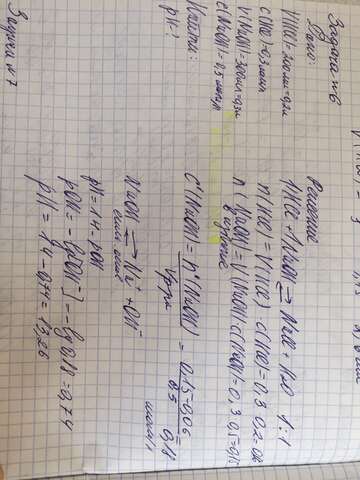 Задача №6
Дано:
V(HCl) = 200 мл = 0,2 л
C(HCl) = 0,3 моль/л
V(NaOH) = 300 мл = 0,3 л
C(NaOH) = 0,5 моль/л
Найти:
pH - ?
Решение
1HCl + 1NaOH ⇄ NaCl + H2O 1:1
n(HCl) = V(HCl) · C(HCl) = 0,3 · 0,2 = 0,06
n(NaOH) = V(NaOH) · C(NaOH) = 0,3 · 0,5 = 0,15
в избытке
C'(NaOH) = n'(NaOH) / V р-ра = 0,15-0,06 / 0,5 = 0,18
NaOH ⇄ Na+ + OH-
pH = 14 - pOH
pOH = -lg[OH-] = -lg 0,18 = 0,74
pH = 14 - 0,74 = 13,26
Задача №7